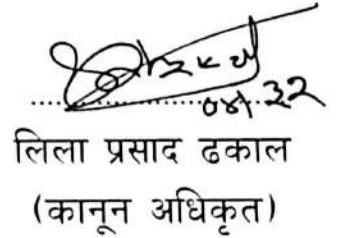 ०४।३२
लिला प्रसाद ढकाल
(कानून अधिकृत)